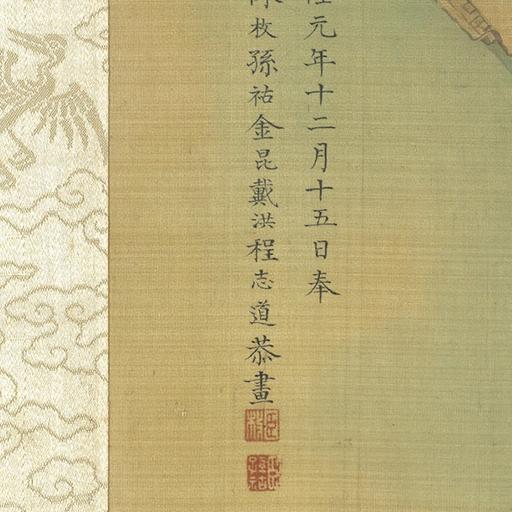 元年十二月十五日奉
枚孫祜金昆戴洪程志道恭畫